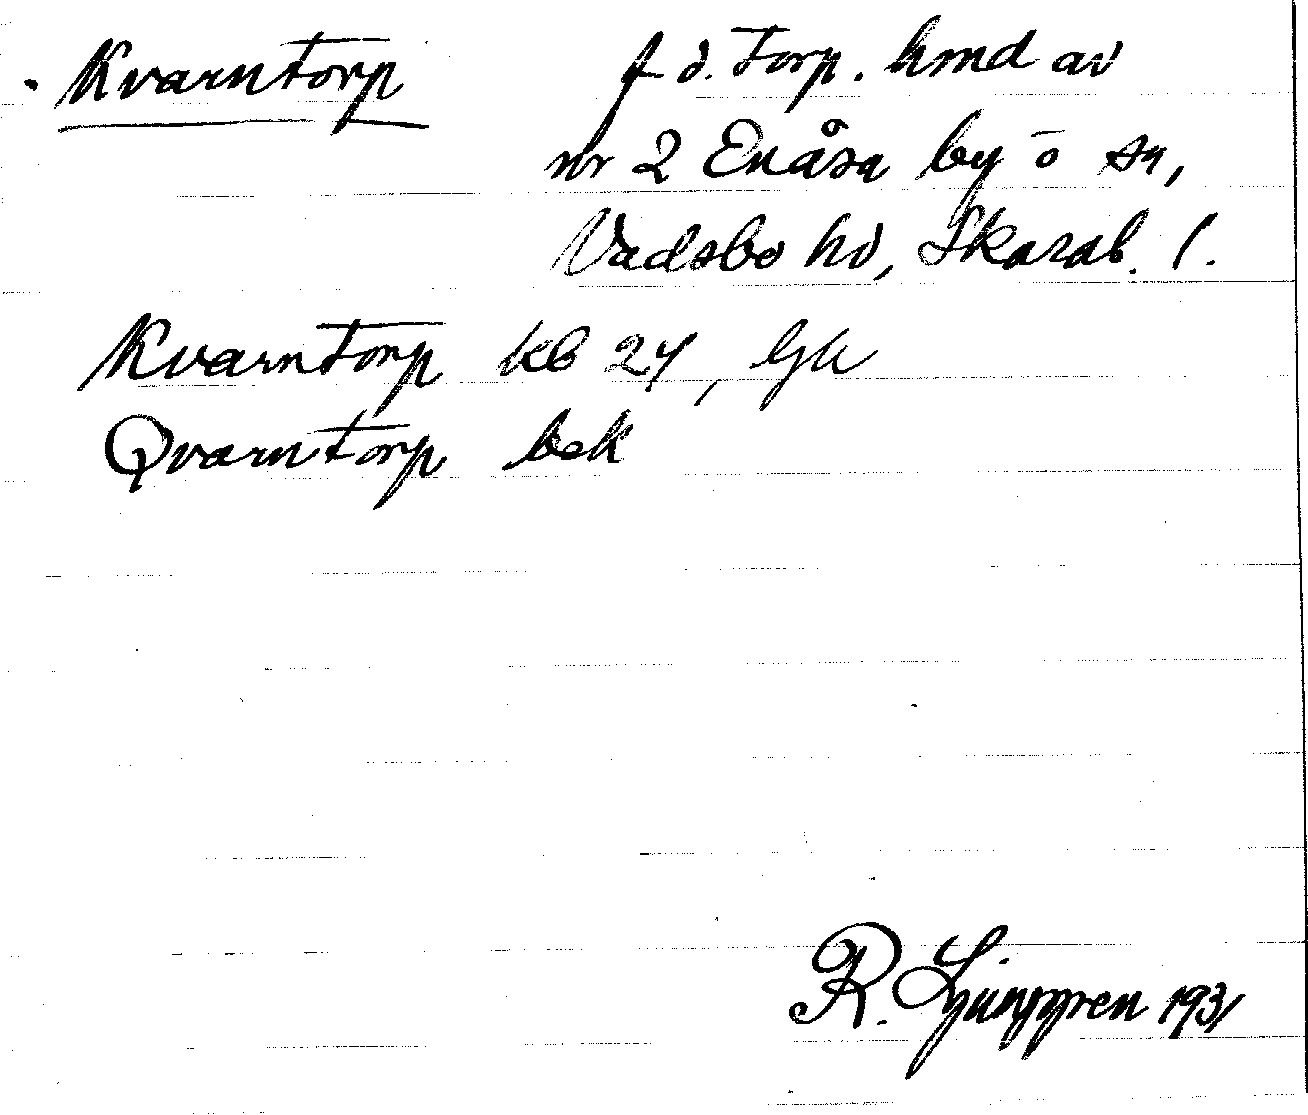 Kvarntorp f d. torp. hmd av
nr 2 Enåsa by o sn,
Vadsbo hd, Skarab. l.
Kvarntorp kb 24, Gk
Qvarntorp bek
R. Ljunggren 1931